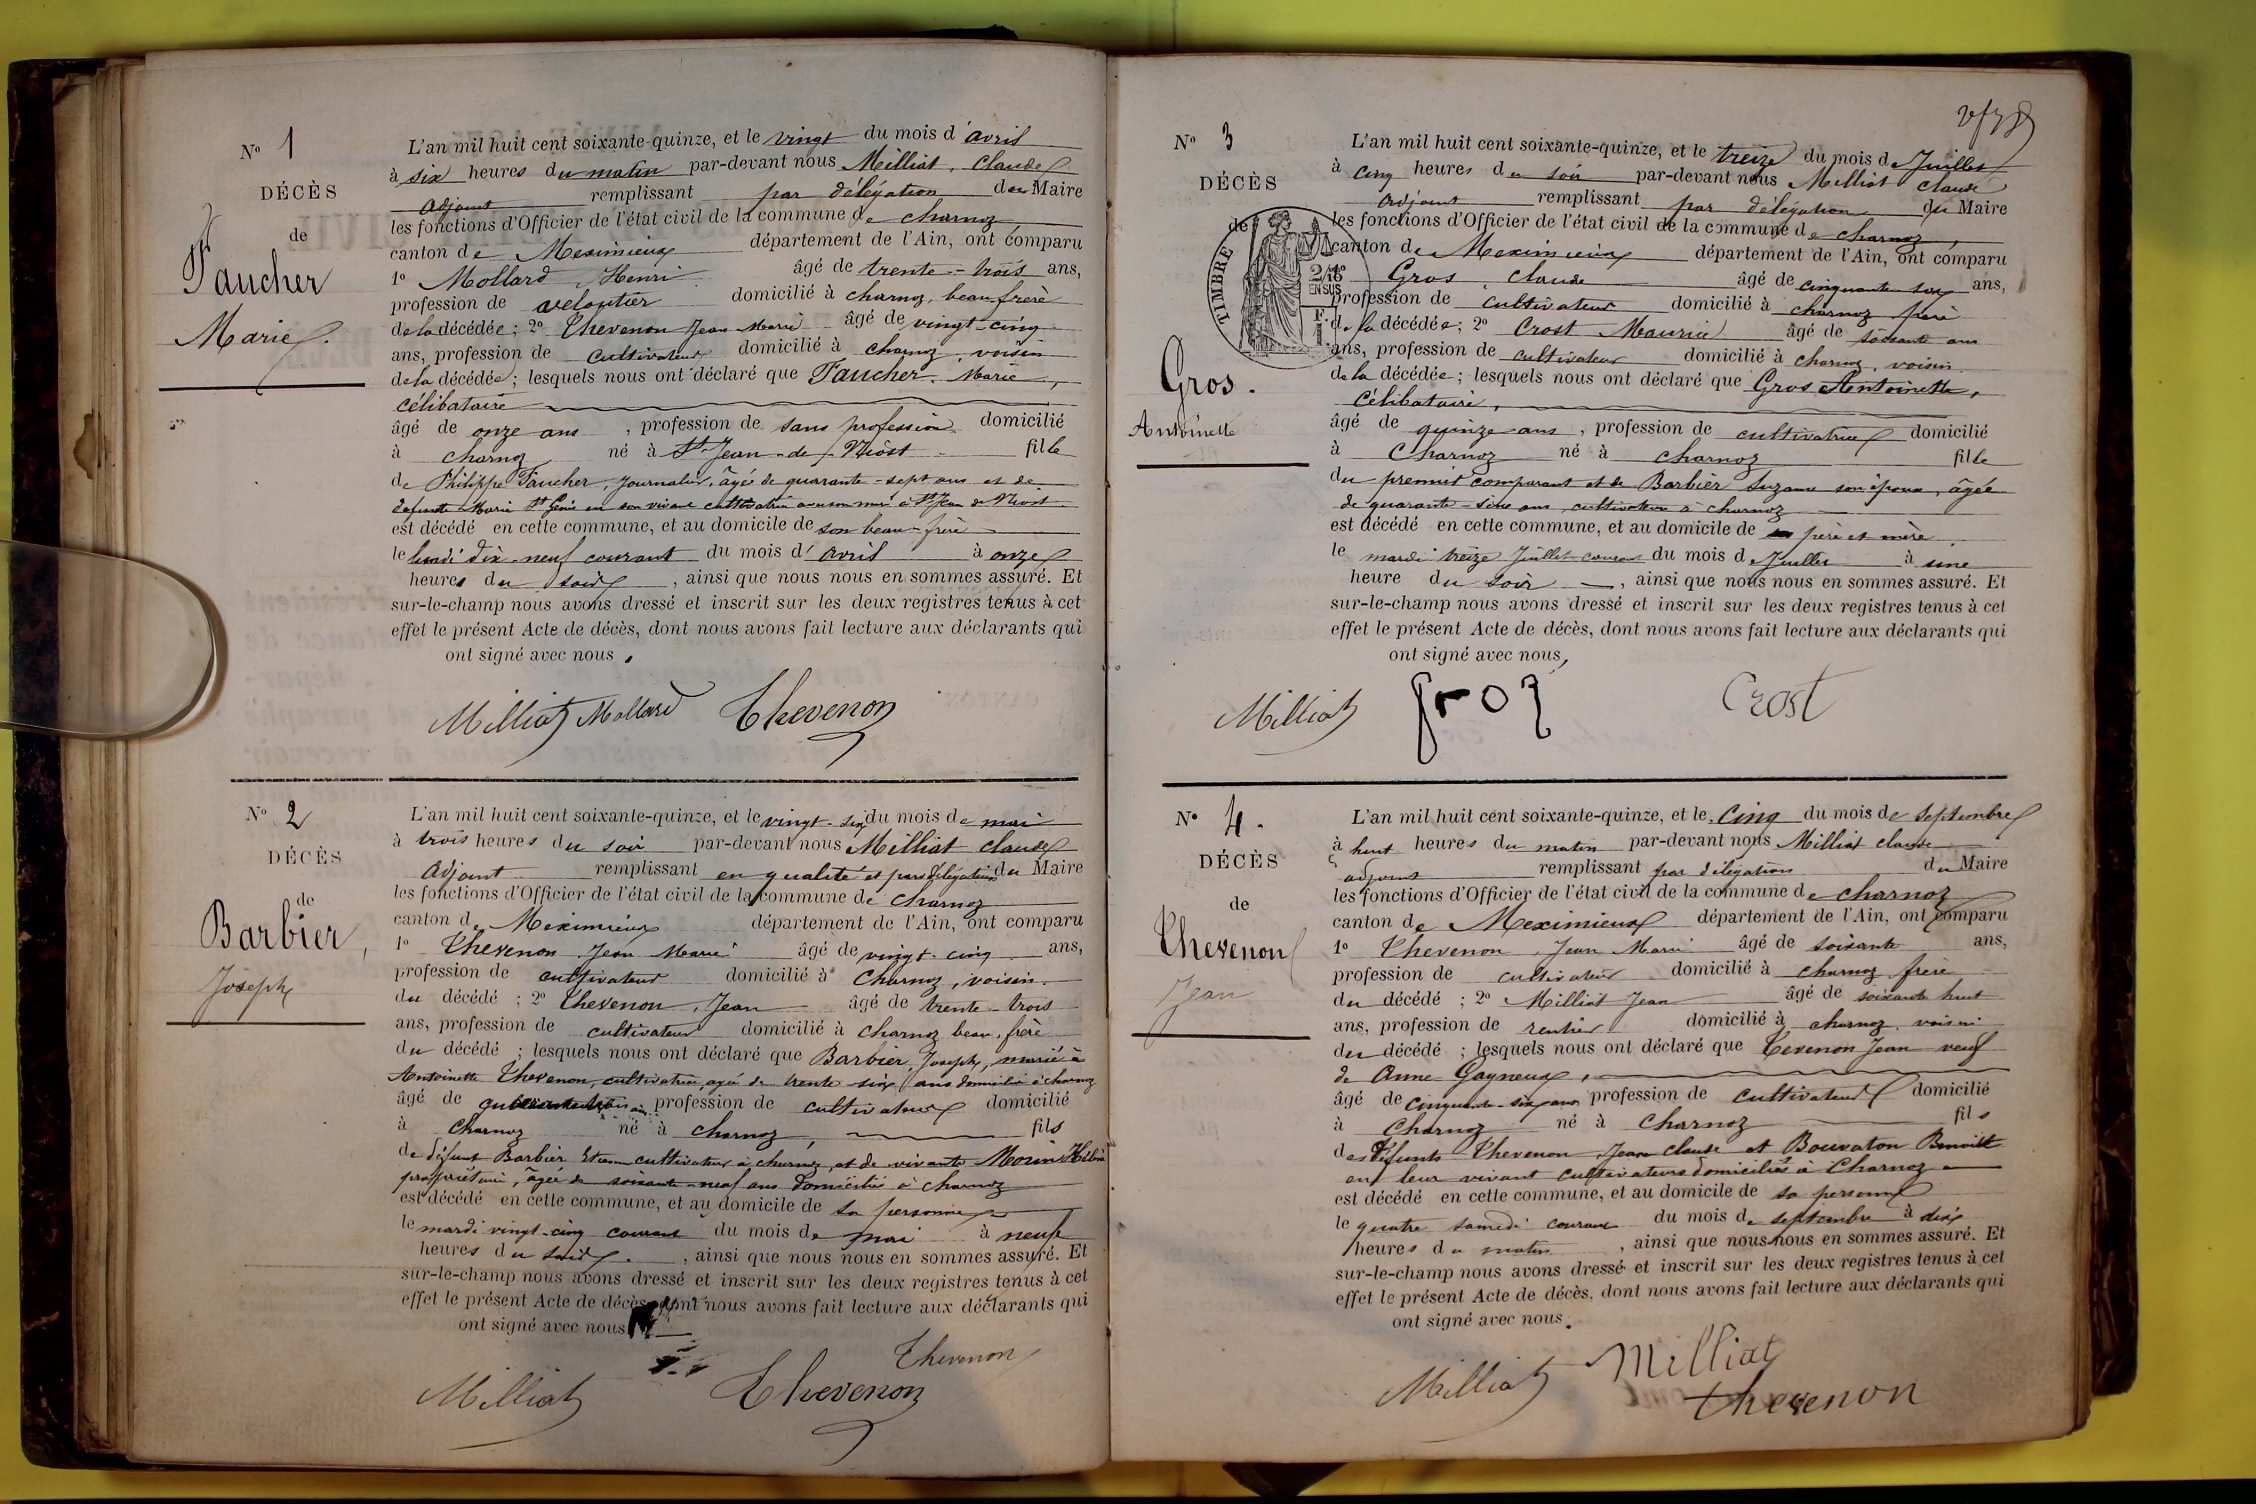 N° 1
DÉCÈS
de
Faucher
Marie
L'an mil huit cent soixante-quinze, et le vingt du mois d'avril
à six heures du matin par-devant nous Milliat, Claude
adjoint remplissant par délégation du Maire
les fonctions d'Officier de l'état civil de la commune de charnoz
canton de Meximieux département de l'Ain, ont comparu
1° Mollard Henri âgé de trente-trois ans,
profession de domicilié à charnoz, beau-frère
de la décédée; 2° Thevenon Jean Marie âgé de vingt-cinq
ans, profession de cultivateur domicilié à charnoz, voisin
de la décédée; lesquels nous ont déclaré que Faucher, Marie,
célibataire
âgé de onze ans, profession de sans profession domicilié
à charnoz né à St Jean-de-Niost fille
de Philippe Faucher, journalier, âgé de quarante-sept ans et de
défunte Marie en son vivant cultivatrice avec son mari à St Jean de Niost
est décédé en cette commune, et au domicile de son beau-frère
le lundi dix-neuf courant du mois d'avril à onze
heures du soir, ainsi que nous nous en sommes assuré. Et
sur-le-champ nous avons dressé et inscrit sur les deux registres tenus à cet
effet le présent Acte de décès, dont nous avons fait lecture aux déclarants qui
ont signé avec nous.
Milliat Mollard Thevenon
N° 2
DÉCÈS
de
Barbier,
Joseph
L'an mil huit cent soixante-quinze, et le vingt-six du mois de mai
à trois heures du soir par-devant nous Milliat claude
adjoint remplissant en qualité et par délégation du Maire
les fonctions d'Officier de l'état civil de la commune de charnoz
canton de Meximieux département de l'Ain, ont comparu
1° Thevenon Jean Marie âgé de vingt-cinq ans,
profession de cultivateur domicilié à Charnoz, voisin
du décédé; 2° Thevenon, Jean âgé de trente-trois
ans, profession de cultivateur domicilié à charnoz beau-frère
du décédé; lesquels nous ont déclaré que Barbier, Joseph, marié à
Antoinette Thevenon, cultivatrice, agée de trente six ans domicilié à charnoz
âgé de profession de cultivateur domicilié
à Charnoz né à charnoz, fils
de défunt Barbier Etienne cultivateur à charnoz, et de vivante Morin
propriétaire, âgée de soixante-neuf ans domiciliée à charnoz
est décédé en cette commune, et au domicile de sa personne
le mardi vingt-cinq courant du mois de mai à neuf
heures du soir, ainsi que nous nous en sommes assuré. Et
sur-le-champ nous avons dressé et inscrit sur les deux registres tenus à cet
effet le présent Acte de décès dont nous avons fait lecture aux déclarants qui
ont signé avec nous
Thevenon
Milliat Thevenon
N° 3
DÉCÈS
de
TIMBRE
Gros.
Antoinette
L'an mil huit cent soixante-quinze, et le treize du mois de Juillet
à cinq heures du soir par-devant nous Milliat claude
adjoint remplissant par délégation du Maire
les fonctions d'Officier de l'état civil de la commune de charnoz
canton de Meximieux département de l'Ain, ont comparu
Gros, claude âgé de cinquante six ans,
profession de cultivateur domicilié à charnoz père
de la décédée; 2° Crost Maurice âgé de soixante ans
ans, profession de cultivateur domicilié à charnoz, voisin
de la décédée; lesquels nous ont déclaré que Gros Antoinette,
célibataire,
âgé de quinze ans, profession de cultivatrice domicilié
à Charnoz né à charnoz fille
du premier comparant et de Barbier Suzanne son épouse, âgée
de quarante-cinq ans, cultivatrice à charnoz
est décédé en cette commune, et au domicile de père et mère
le mardi treize Juillet courant du mois de Juillet à une
heure du soir, ainsi que nous nous en sommes assuré. Et
sur-le-champ nous avons dressé et inscrit sur les deux registres tenus à cet
effet le présent Acte de décès, dont nous avons fait lecture aux déclarants qui
ont signé avec nous,
Milliat groz Crost
N° 4.
DÉCÈS
de
Thevenon
Jean
L'an mil huit cent soixante-quinze, et le cinq du mois de septembre
à huit heures du matin par-devant nous Milliat claude
adjoint remplissant par délégation du Maire
les fonctions d'Officier de l'état civil de la commune de charnoz
canton de Meximieux département de l'Ain, ont comparu
1° Thevenon, Jean Marie âgé de soixante ans,
profession de cultivateur domicilié à charnoz frère
du décédé; 2° Milliat Jean âgé de soixante huit
ans, profession de rentier domicilié à charnoz, voisin
du décédé; lesquels nous ont déclaré que Tevenon Jean veuf
de Anne Gayneux,
âgé de cinquante-six ans profession de cultivateur domicilié
à Charnoz né à Charnoz fils
des défunts Thevenon, Jean Claude et Bouvaton Benoite
en leur vivant cultivateurs domiciliés à Charnoz
est décédé en cette commune, et au domicile de sa personne
le quatre samedi courant du mois de septembre à dix
heures du matin, ainsi que nous nous en sommes assuré. Et
sur-le-champ nous avons dressé et inscrit sur les deux registres tenus à cet
effet le présent Acte de décès, dont nous avons fait lecture aux déclarants qui
ont signé avec nous.
Milliat Milliat
thevenon